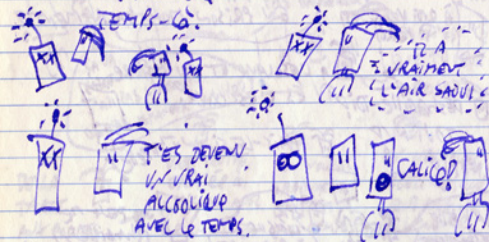 TEMPS-LÀ.
IL A
VRAIMENT
L'AIR SAOUL
T'ES DEVENU
UN VRAI
ALCOOLIQUE
AVEC LE TEMPS.
CALICE!